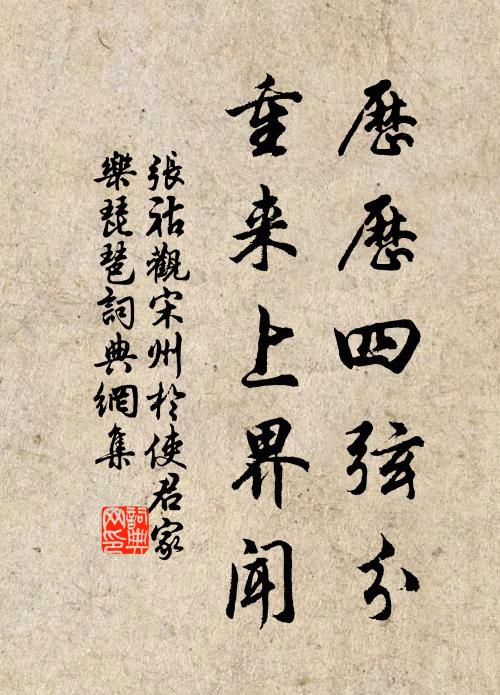 歷歷四弦分
重来上界闻
張祜觀宋州於使君家
樂琵琶詞典網集
詞典网印